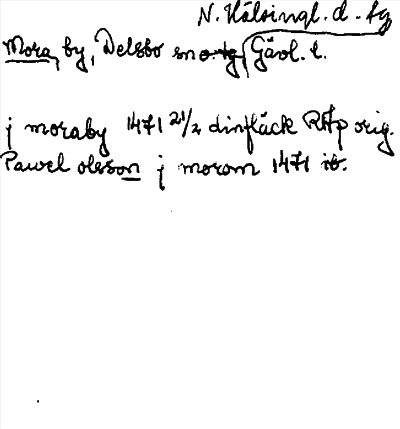 N. Hälsingl. d. sg
Mora, by, Delsbo sn Gävl. l.
j moraby 1471 21/2 dinfläck RAp orig.
Pawel olsson j morom 1471 ib.